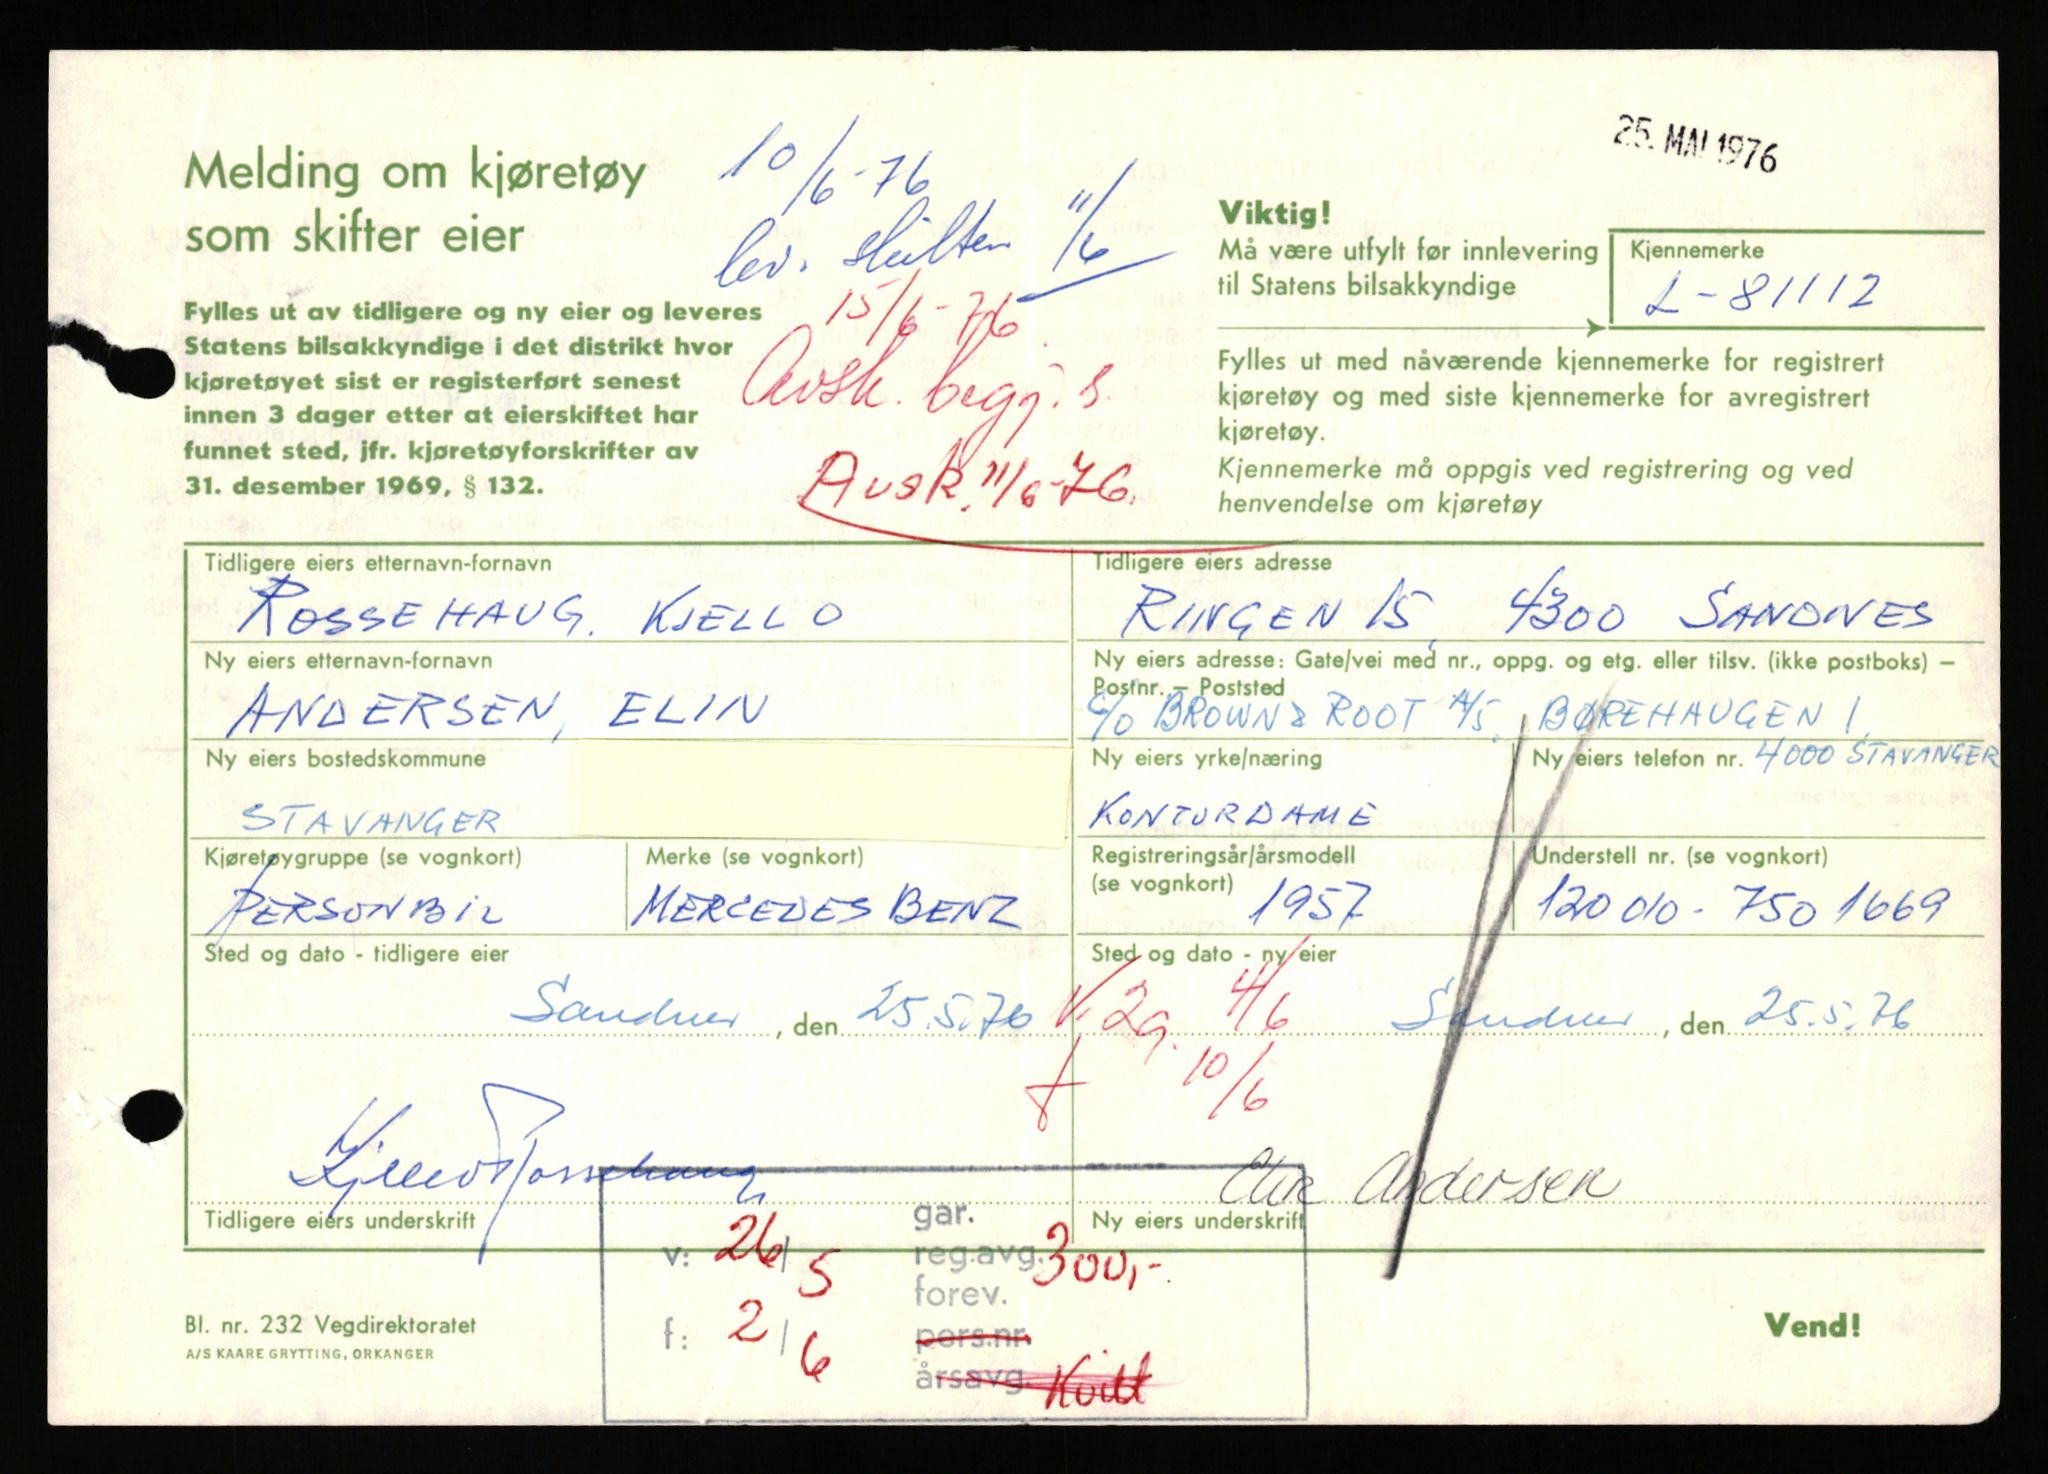 25. MAI 1976
Melding om kjøretøy
som skifter eier
10/6-76
lev. skilten 11/6
15/6-76
Avsk. begj. s
Avsk. 11/6-76.
Fylles ut av tidligere og ny eier og leveres
Statens bilsakkyndige i det distrikt hvor
kjøretøyet sist er registerført senest
innen 3 dager etter at eierskiftet har
funnet sted, jfr. kjøretøyforskrifter av
31. desember 1969, § 132.
Viktig!
Må være utfylt før innlevering
til Statens bilsakkyndige
Kjennemerke
L-81112
Fylles ut med nåværende kjennemerke for registrert
kjøretøy og med siste kjennemerke for avregistrert
kjøretøy.
Kjennemerke må oppgis ved registrering og ved
henvendelse om kjøretøy
Tidligere eiers etternavn-fornavn
ROSSEHAUG. KJELL O
Tidligere eiers adresse
RINGEN 15, 4300 SANDNES
Ny eiers etternavn-fornavn
ANDERSEN, ELIN
Ny eiers adresse: Gate/vei med nr., oppg. og etg. eller tilsv. (ikke postboks) –
Postnr. – Poststed
C/O BROWN & ROOT A/S. BØREHAUGEN 1,
4000 STAVANGER
Ny eiers bostedskommune
STAVANGER
Ny eiers yrke/næring
KONTORDAME
Ny eiers telefon nr.
Kjøretøygruppe (se vognkort)
PERSONBIL
Merke (se vognkort)
MERCEDES BENZ
Registreringsår/årsmodell
(se vognkort)
1957
Understell nr. (se vognkort)
120010-7501669
Sted og dato - tidligere eier
Sandnes, den 25.5.76
Sted og dato - ny eier
Sandnes, den 25.5.76
V. 2g. 4/6
10/6
Kjell O Rossehaug
Tidligere eiers underskrift
Elin Andersen
Ny eiers underskrift
v: 26/5
f: 2/6
gar.
reg.avg. 300,-
forev.
pers.nr.
årsavg. Kvitt
Bl. nr. 232 Vegdirektoratet
A/S KAARE GRYTTING, ORKANGER
Vend!